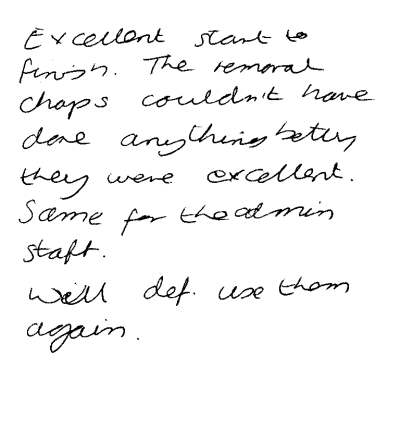 Excellent start to
finish. The removal
chaps couldn't have
done anything better,
they were excellent.
Same for the admin
staff.
Will def. use them
again.